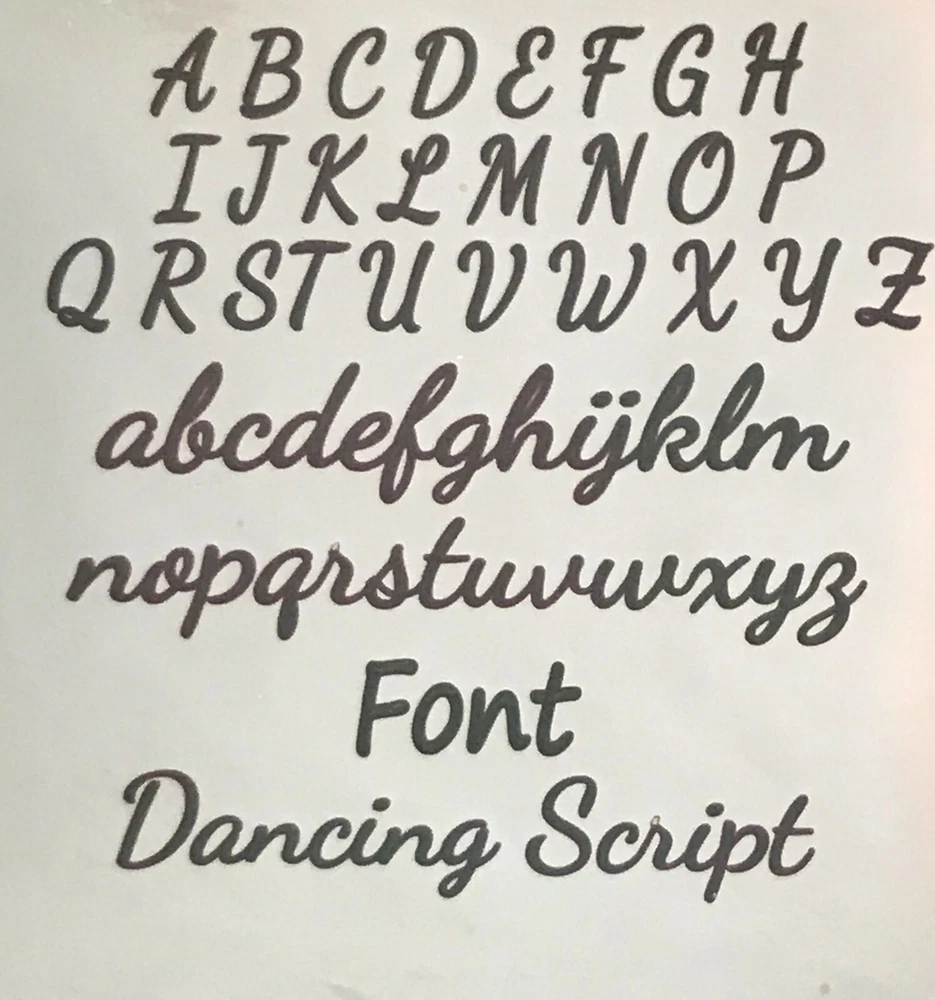 A B C D E F G H
I J K L M N O P
Q R S T U V W X Y Z
abcdefghijklm
nopqrstuvwxyz
Font
Dancing Script